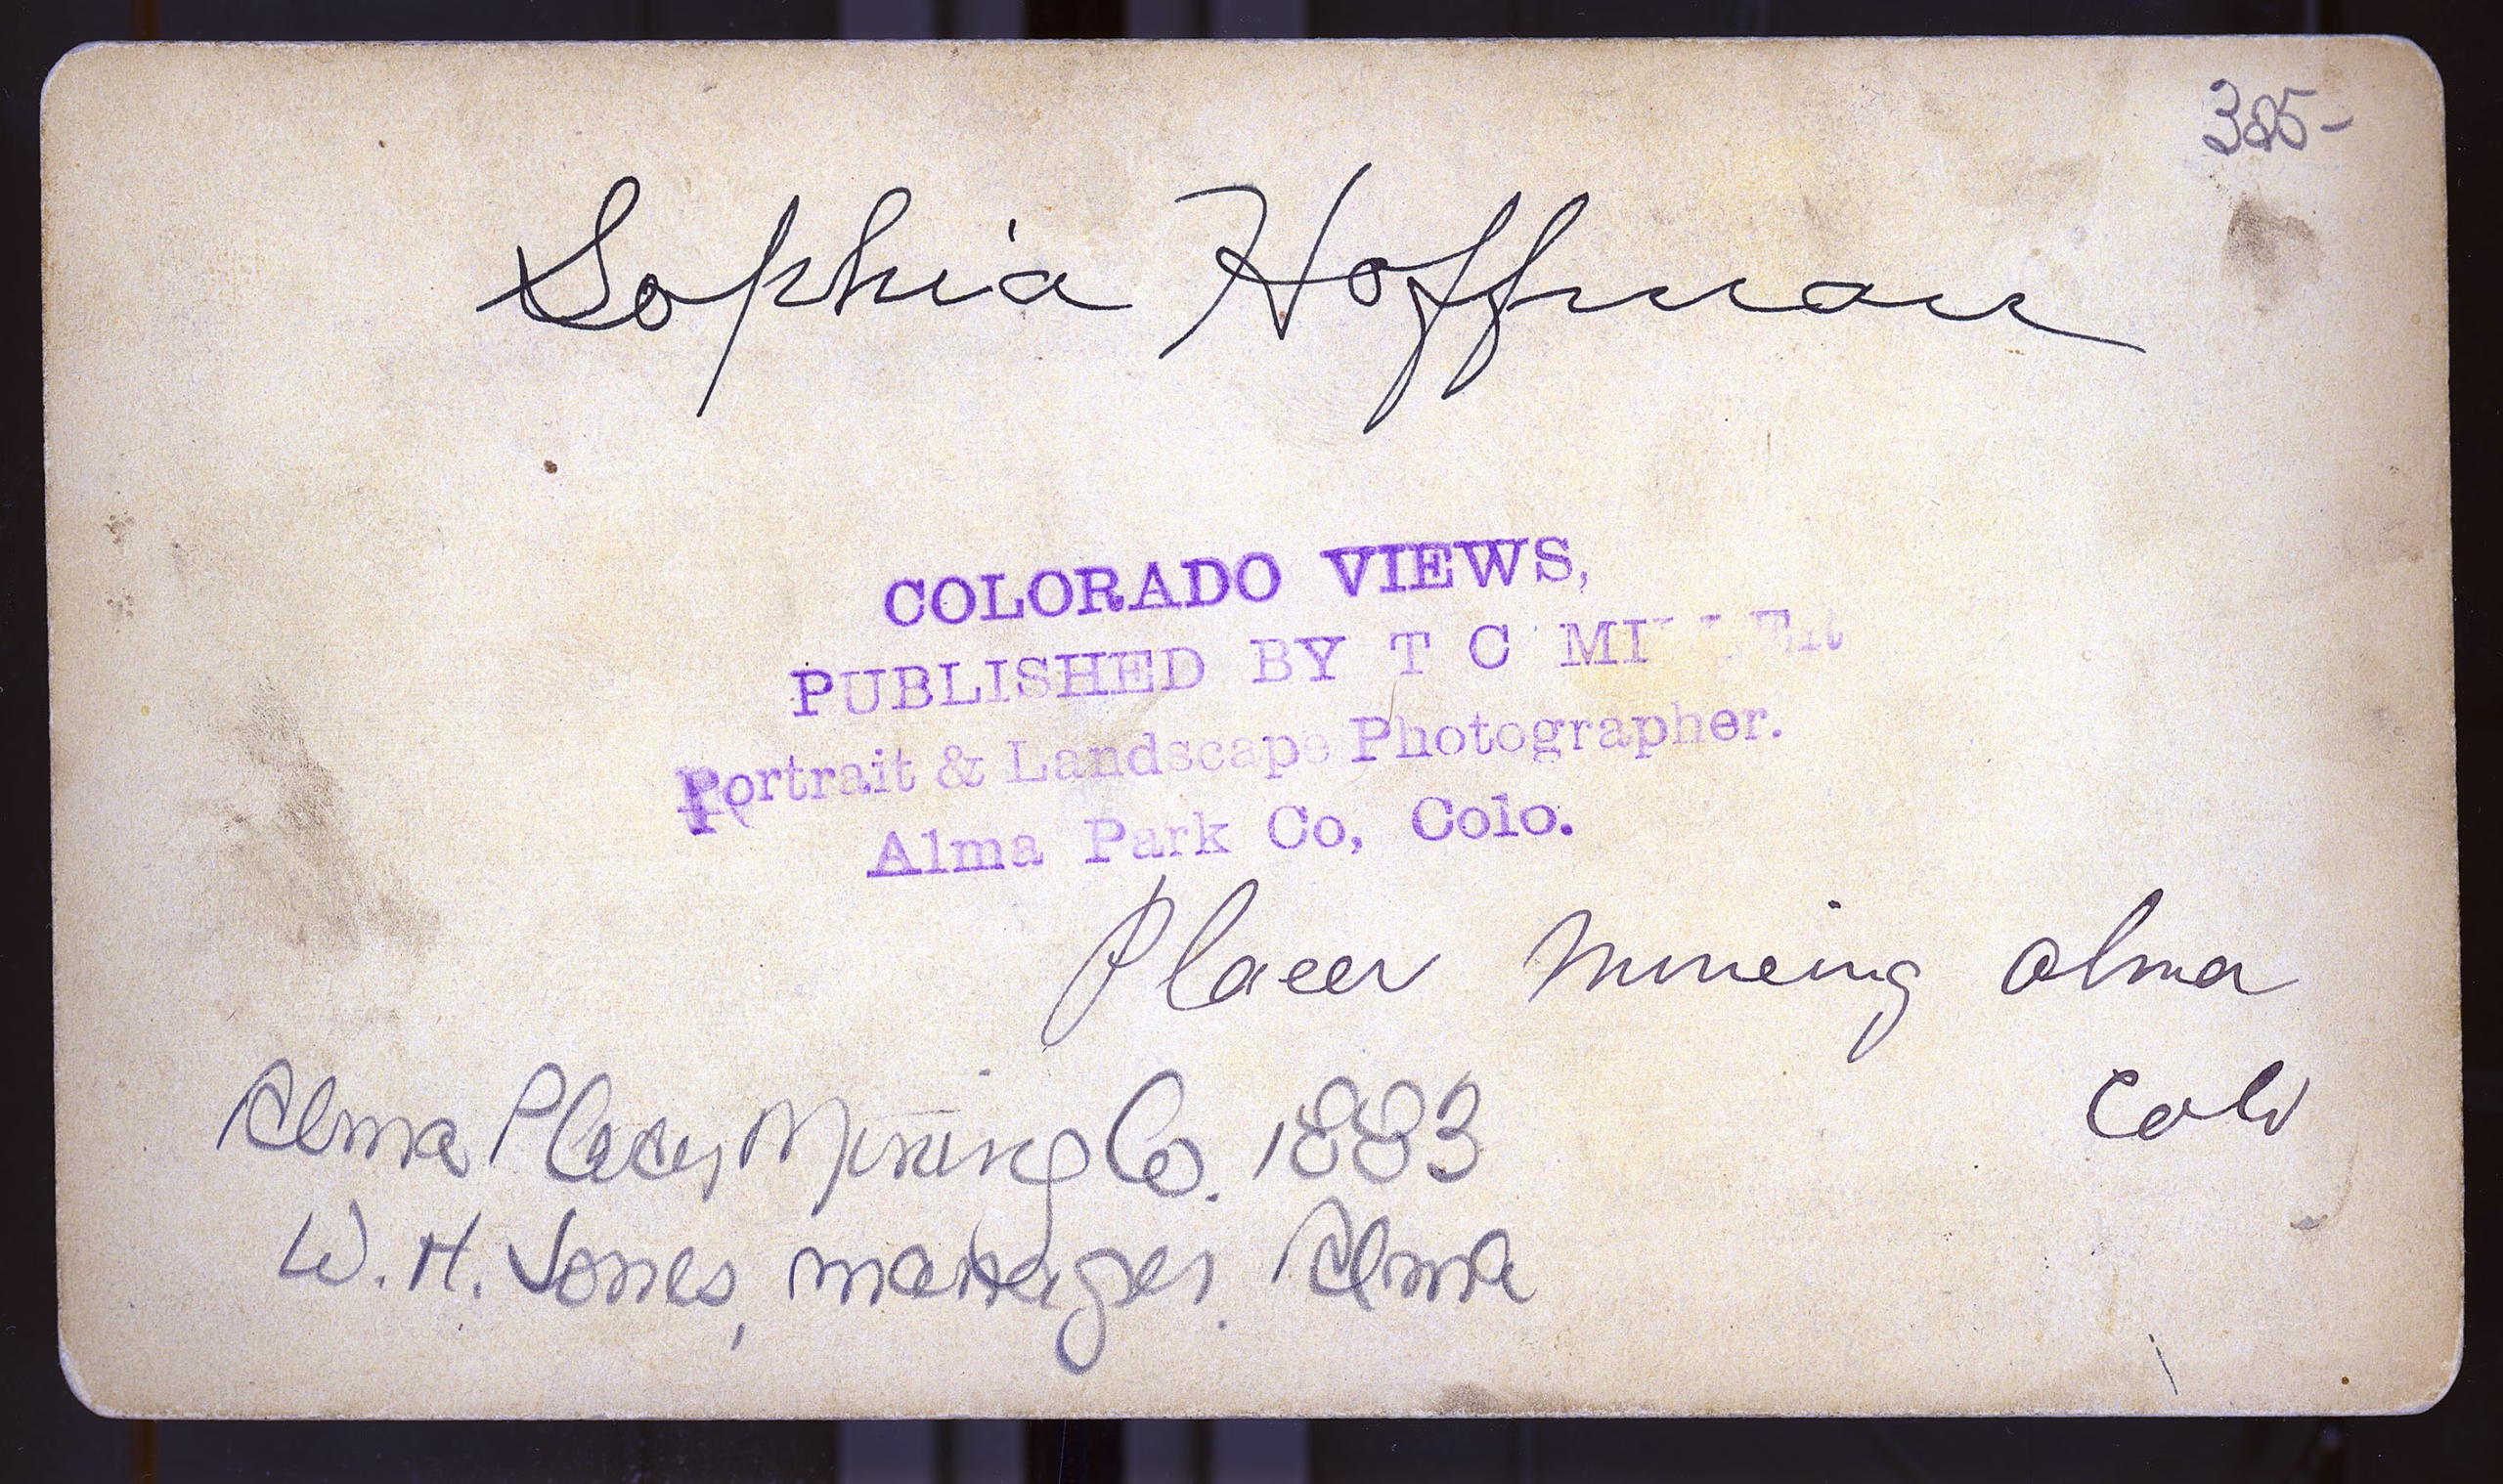 385-
Sophia Hoffman
COLORADO VIEWS,
PUBLISHED BY T C
Portrait & Landscape Photographer.
Alma Park Co, Colo.
Placer Mineing Alma
Colo
Alma Placer Mining Co. 1883
W. H. Jones, manager. Alma